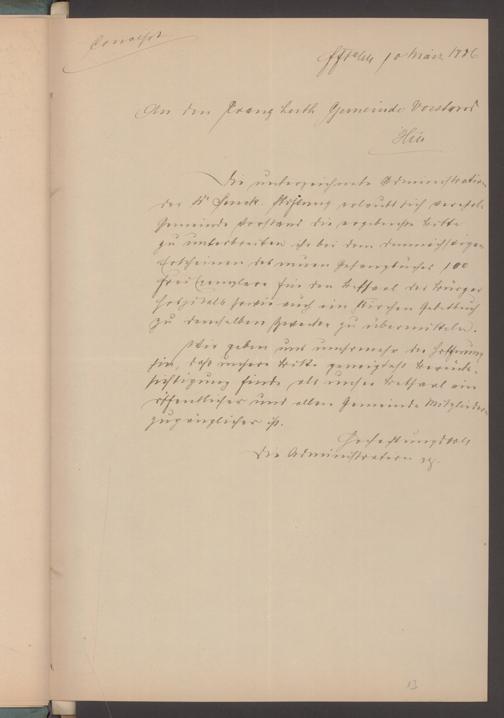 Concept
Ffts/M 10 März 1886
An den Evang. luth. Gemeinde Vorstand
Hier
Die unterzeichnete Administration
der Dr Senck. Stiftung erlaubt sich verehrl.
Gemeinde Vorstand die ergebenste Bitte
zu unterbreiten, ihr bei dem demnächstigen
Erscheinen des neuen Gesangbuches 100
Frei Exemplare für den Betsaal des Bürger
hospitals sowie auch ein Kirchen Gebetbuch
zu demselben Zwecke zu übermitteln.
Wir geben uns umsomehr der Hoffnung
hin, daß unsere Bitte geneigtest Berück-
sichtigung finde als unser Betsaal ein
öffentlicher und allen Gemeinde Mitgliedern
zugänglicher ist.
Hochachtungsvoll
Die Administration
13